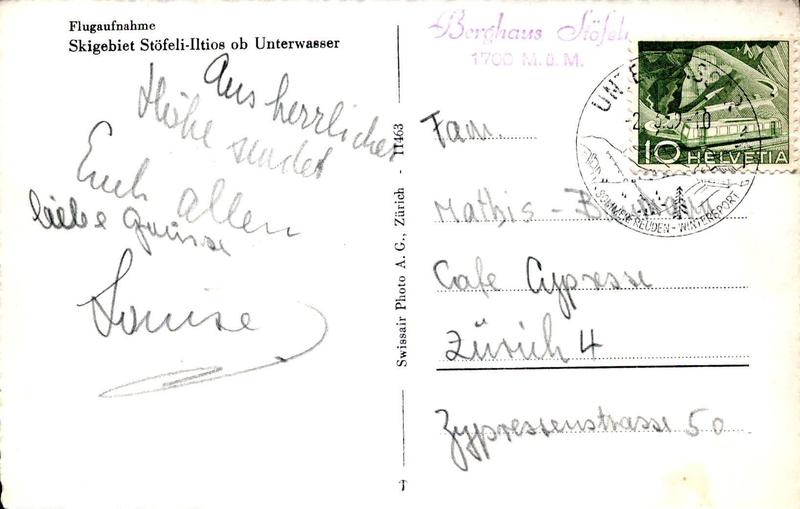 Flugaufnahme
Skigebiet Stöfeli-Iltios ob Unterwasser
Aus herrlicher
Höhe sendet
Euch allen
liebe Grüsse
Louise
Swissair Photo A. G., Zürich - 11463
Berghaus Stöfeli
1700 M. ü. M.
10 HELVETIA
SOMMERFREUDEN - WINTERSPORT
Fam.
Mathis -
Cafe Cypresse
Zürich 4
Zypressenstrasse 50